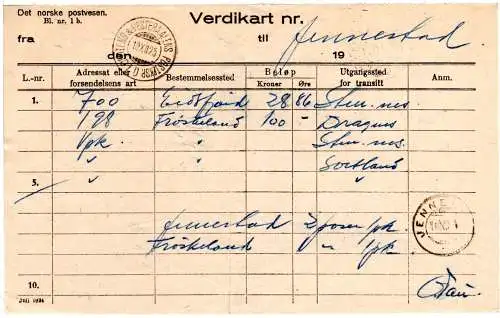 Det norske postvesen.
Bl. nr. 1 b.
Verdikart nr.
fra
til Jennestad
den
19
L.-nr. Adressat eller forsendelsens art Bestemmelsessted Beløp Kroner Øre Utgangssted for transitt Anm.
1. 700 Eidsfjord 28 86 Stm.nes
199 Frøskeland 100 – Dragnes
Vpk. " Stm.nes
" " Sortland
5. "
Jennestad 2 poser 1 pk.
Frøskeland " 1 pk.
10.
Juli 1924
JENNE